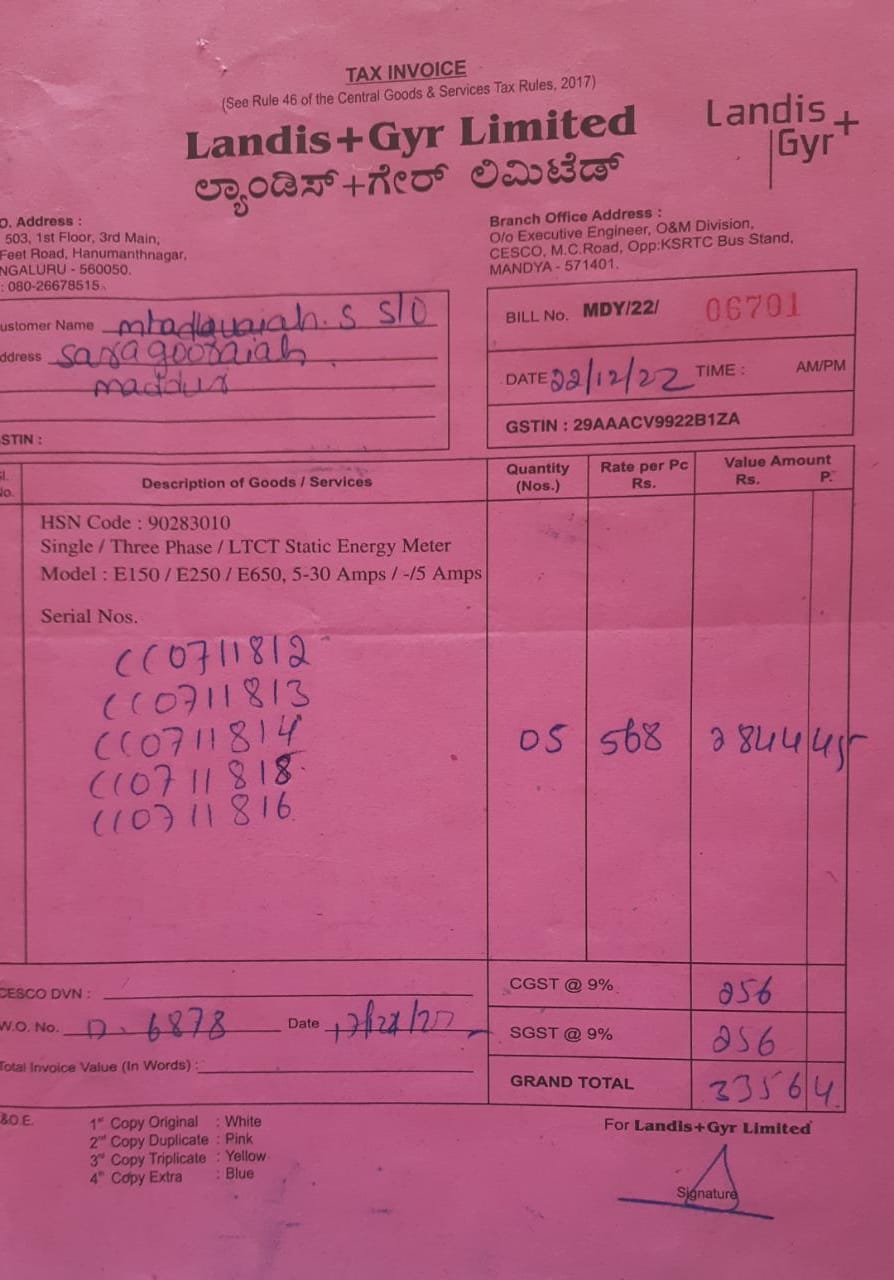 TAX INVOICE
(See Rule 46 of the Central Goods & Services Tax Rules, 2017)
Landis+Gyr Limited
ಲ್ಯಾಂಡಿಸ್+ಗೇರ್ ಲಿಮಿಟೆಡ್
Landis+
Gyr
O. Address :
503, 1st Floor, 3rd Main,
Feet Road, Hanumanthnagar,
NGALURU - 560050.
: 080-26678515
Branch Office Address :
O/o Executive Engineer, O&M Division,
CESCO, M.C.Road, Opp:KSRTC Bus Stand,
MANDYA - 571401.
ustomer Name S S/O
ddress
maddur
STIN :
BILL No. MDY/22/ 06701
DATE 22/12/22 TIME : AM/PM
GSTIN : 29AAACV9922B1ZA
Sl. No. Description of Goods / Services Quantity (Nos.) Rate per Pc Rs. Value Amount Rs. P.
HSN Code : 90283010
Single / Three Phase / LTCT Static Energy Meter
Model : E150 / E250 / E650, 5-30 Amps / -/5 Amps
Serial Nos.
CC0711812
CC0711813
CC0711814 05 568 2844
CC0711818
CC0711816
CESCO DVN :
CGST @ 9% 256
W.O. No. 6878 Date
SGST @ 9% 256
Total Invoice Value (In Words) :
GRAND TOTAL 3356 4
&O.E.
1st Copy Original : White
2nd Copy Duplicate : Pink
3rd Copy Triplicate : Yellow
4th Copy Extra : Blue
For Landis+Gyr Limited
Signature